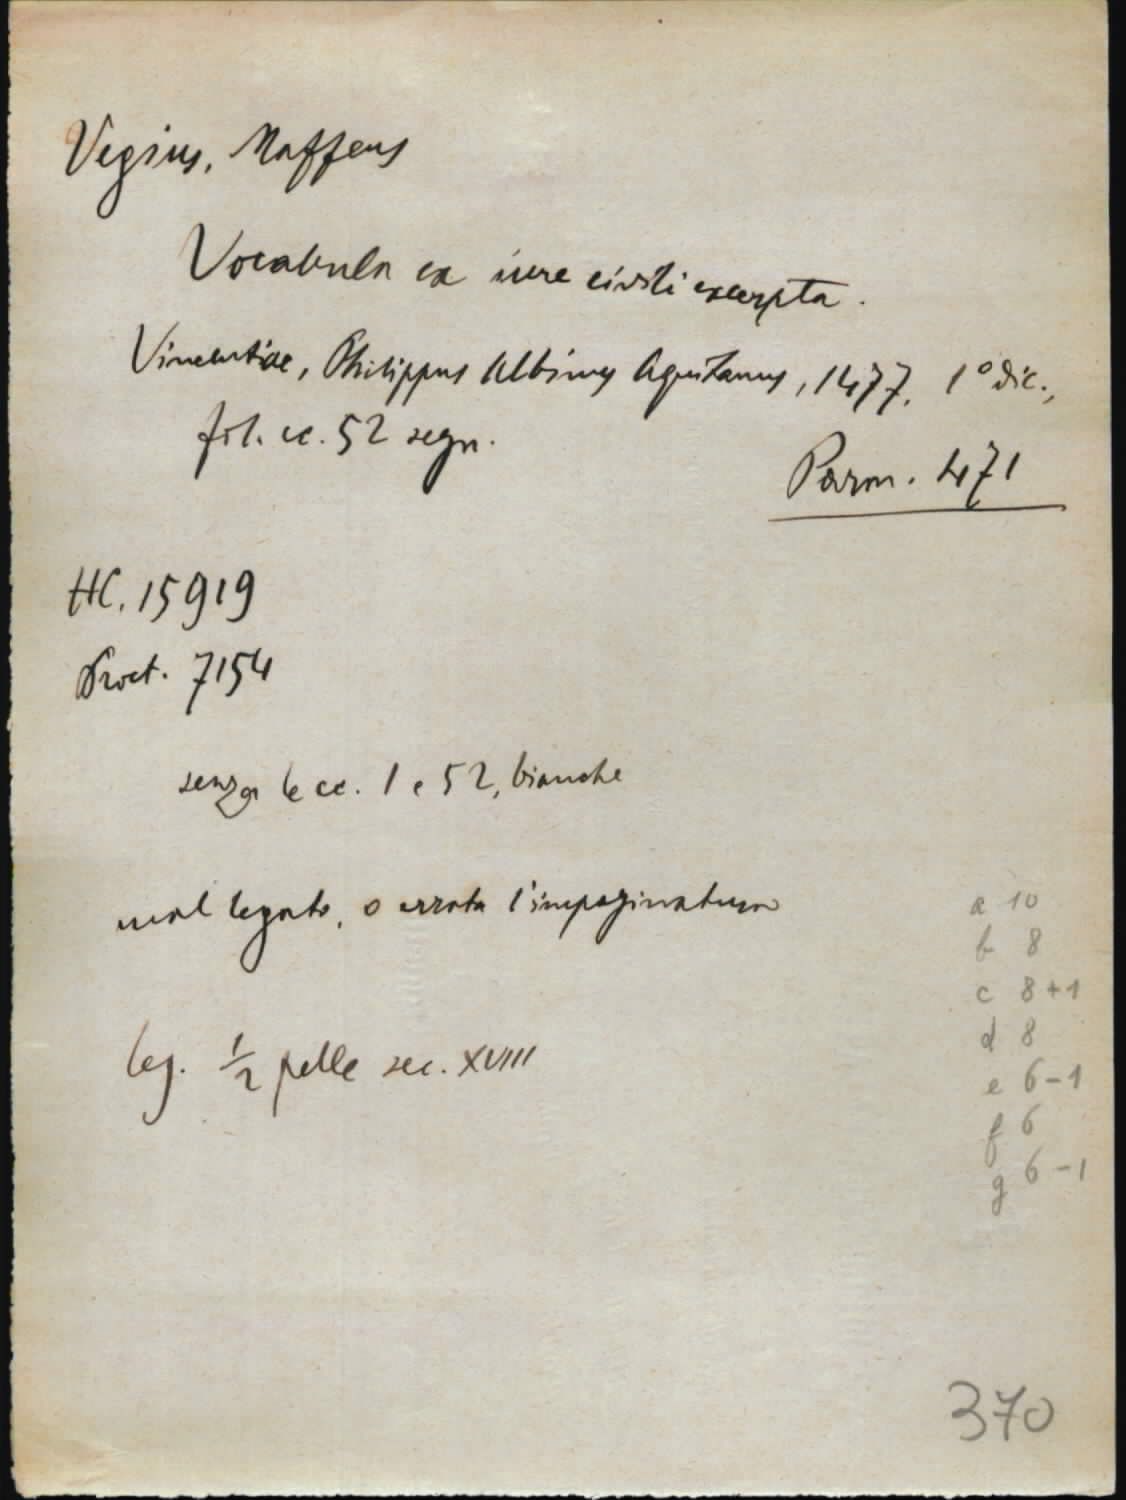 Vegius, Maffeus
Vocabula ex iure civili excerpta.
Vincentiae, Philippus Albinus Aquitanus, 1477, 1° dic.,
fol. cc. 52 segn.
Parm. 471
HC. 15919
Proct. 7154
senza le cc. 1 e 52, bianche
mal legato, o errata l'impaginatura
a 10
b 8
c 8+1
d 8
e 6-1
f 6
g 6-1
leg. 1/2 pelle sec. XVIII
370